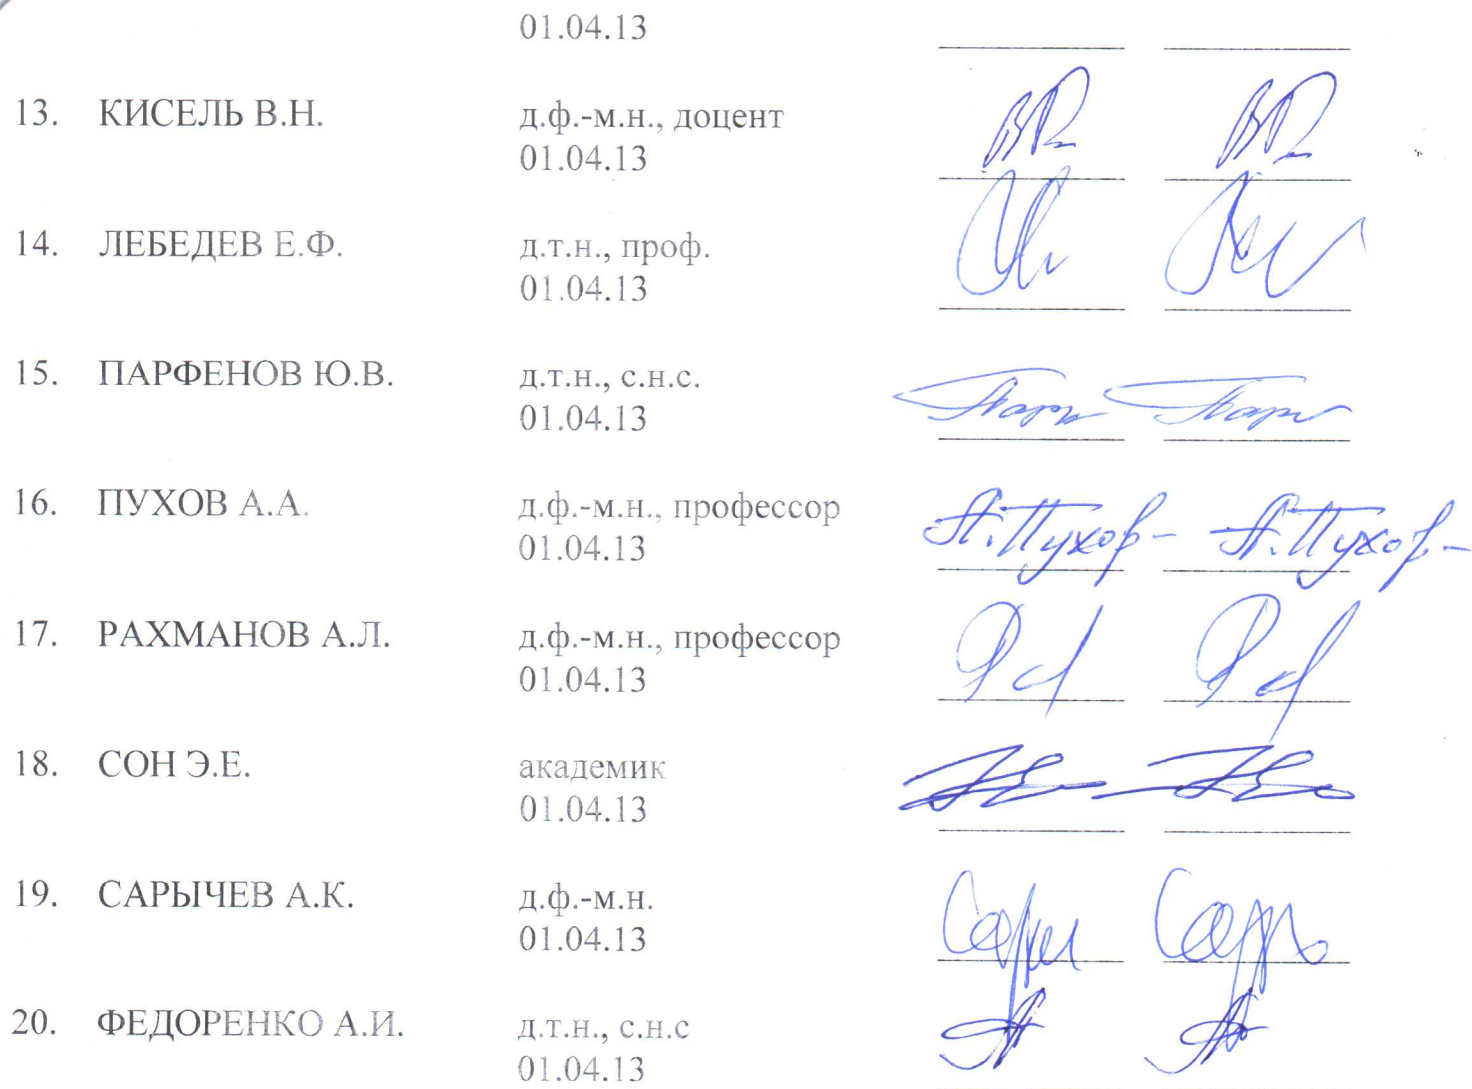 01.04.13
13. КИСЕЛЬ В.Н. д.ф.-м.н., доцент
01.04.13
14. ЛЕБЕДЕВ Е.Ф. д.т.н., проф.
01.04.13
15. ПАРФЕНОВ Ю.В. д.т.н., с.н.с.
01.04.13
16. ПУХОВ А.А. д.ф.-м.н., профессор А.Пухов- А.Пухов-
01.04.13
17. РАХМАНОВ А.Л. д.ф.-м.н., профессор
01.04.13
18. СОН Э.Е. академик
01.04.13
19. САРЫЧЕВ А.К. д.ф.-м.н.
01.04.13
20. ФЕДОРЕНКО А.И. д.т.н., с.н.с
01.04.13